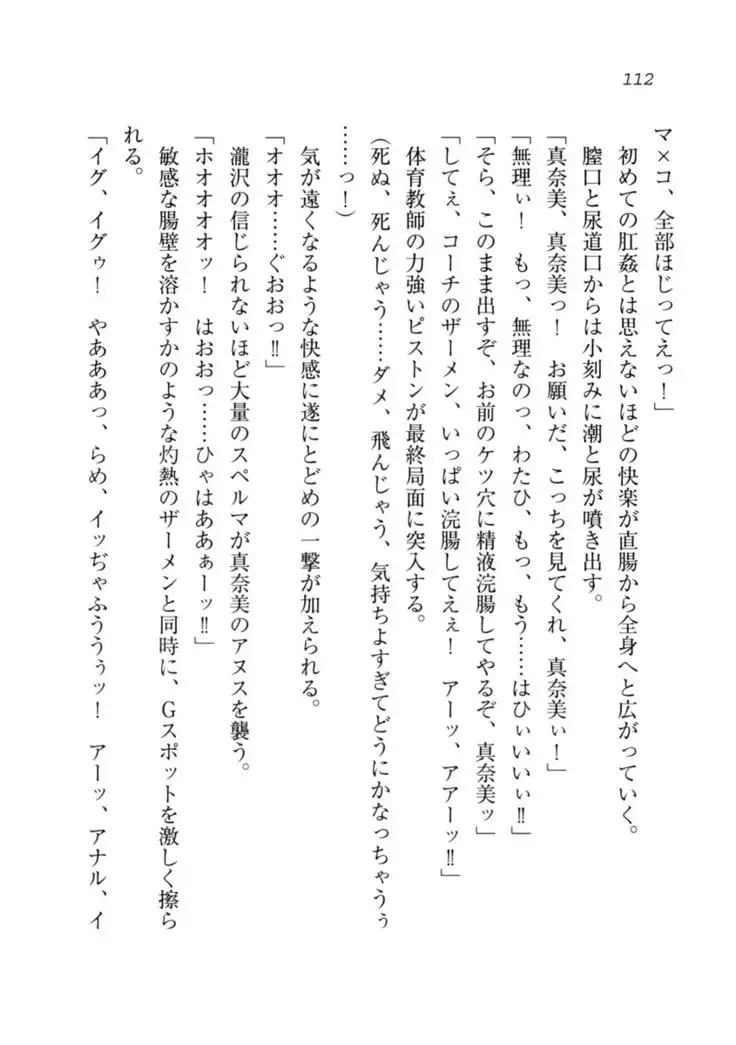 112
マ×コ、全部ほじってえっ！」
初めての肛姦とは思えないほどの快楽が直腸から全身へと広がっていく。
膣口と尿道口からは小刻みに潮と尿が噴き出す。
「真奈美、真奈美っ！　お願いだ、こっちを見てくれ、真奈美ぃ！」
「無理ぃ！　もっ、無理なのっ、わたひ、もっ、もう……はひぃいいぃ‼」
「そら、このまま出すぞ、お前のケツ穴に精液浣腸してやるぞ、真奈美ッ」
「してぇ、コーチのザーメン、いっぱい浣腸してえぇ！　アーッ、アアーッ‼」
体育教師の力強いピストンが最終局面に突入する。
（死ぬ、死んじゃう……ダメ、飛んじゃう、気持ちよすぎてどうにかなっちゃうぅ
……っ！）
気が遠くなるような快感に遂にとどめの一撃が加えられる。
「オオオ……ぐおおっ‼」
瀧沢の信じられないほど大量のスペルマが真奈美のアヌスを襲う。
「ホオオオオッ！　はおおっ……ひゃはああぁーッ‼」
敏感な腸壁を溶かすかのような灼熱のザーメンと同時に、Ｇスポットを激しく擦ら
れる。
「イグ、イグゥ！　やあああっ、らめ、イッぢゃふううぅッ！　アーッ、アナル、イ